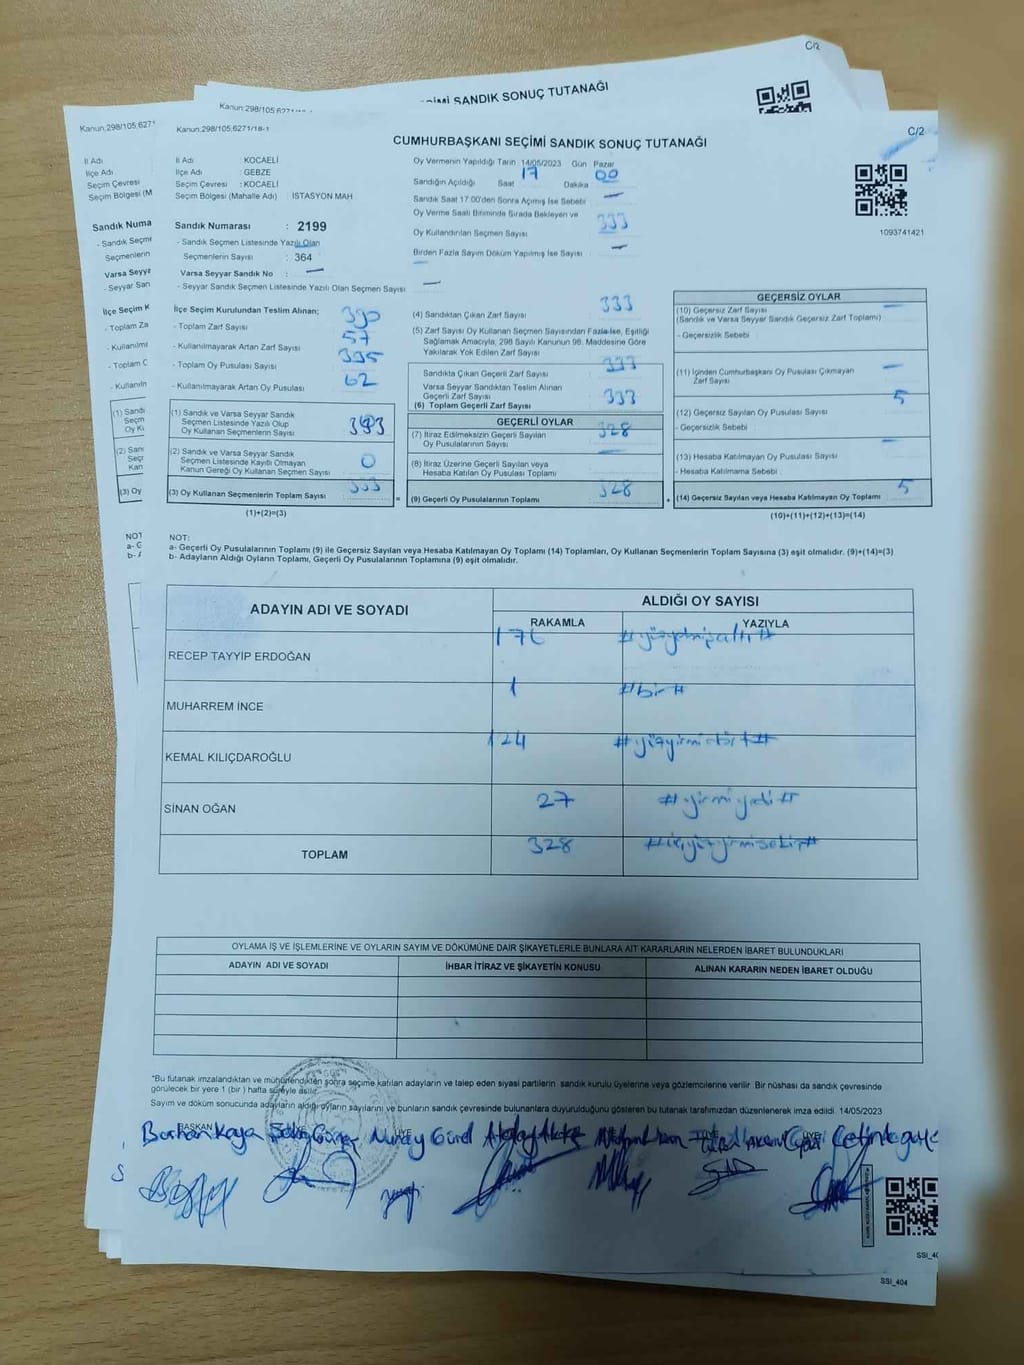 C/2
CUMHURBAŞKANI SEÇİMİ SANDIK SONUÇ TUTANAĞI
SANDIK SONUÇ TUTANAĞI
Kanun:298/105;6271/18-1
C/2
İl Adı KOCAELİ
İlçe Adı GEBZE
Seçim Çevresi : KOCAELİ
Seçim Bölgesi (Mahalle Adı) İSTASYON MAH
Sandık Numarası : 2199
- Sandık Seçmen Listesinde Yazılı Olan
Seçmenlerin Sayısı : 364
Varsa Seyyar Sandık No : —
- Seyyar Sandık Seçmen Listesinde Yazılı Olan Seçmen Sayısı —
Oy Vermenin Yapıldığı Tarih 14/05/2023 Gün Pazar
Sandığın Açıldığı Saat 17 Dakika 00
Sandık Saat 17.00'den Sonra Açımış İse Sebebi —
Oy Verme Saati Bitiminde Sırada Bekleyen ve
Oy Kullandırılan Seçmen Sayısı 333
Birden Fazla Sayım Döküm Yapılmış İse Sayısı —
1093741421
İlçe Seçim Kurulundan Teslim Alınan;
- Toplam Zarf Sayısı 390
- Kullanılmayarak Artan Zarf Sayısı 57
- Toplam Oy Pusulası Sayısı 395
- Kullanılmayarak Artan Oy Pusulası 62
(1) Sandık ve Varsa Seyyar Sandık
Seçmen Listesinde Yazılı Olup
Oy Kullanan Seçmenlerin Sayısı
(2) Sandık ve Varsa Seyyar Sandık
Seçmen Listesinde Kayıtlı Olmayan
Kanun Gereği Oy Kullanan Seçmen Sayısı 0
(3) Oy Kullanan Seçmenlerin Toplam Sayısı 333
(1)+(2)=(3)
(4) Sandıktan Çıkan Zarf Sayısı 333
(5) Zarf Sayısı Oy Kullanan Seçmen Sayısından Fazla İse, Eşitliği
Sağlamak Amacıyla, 298 Sayılı Kanunun 98. Maddesine Göre
Yakılarak Yok Edilen Zarf Sayısı
Sandıkta Çıkan Geçerli Zarf Sayısı 333
Varsa Seyyar Sandıktan Teslim Alınan
Geçerli Zarf Sayısı
(6) Toplam Geçerli Zarf Sayısı 333
GEÇERLİ OYLAR
(7) İtiraz Edilmeksizin Geçerli Sayılan
Oy Pusulalarının Sayısı 328
(8) İtiraz Üzerine Geçerli Sayılan veya
Hesaba Katılan Oy Pusulası Toplamı —
(9) Geçerli Oy Pusulalarının Toplamı 328
GEÇERSİZ OYLAR
(10) Geçersiz Zarf Sayısı —
(Sandık ve Varsa Seyyar Sandık Geçersiz Zarf Toplamı)
- Geçersizlik Sebebi
(11) İçinden Cumhurbaşkanı Oy Pusulası Çıkmayan
Zarf Sayısı —
(12) Geçersiz Sayılan Oy Pusulası Sayısı 5
- Geçersizlik Sebebi
(13) Hesaba Katılmayan Oy Pusulası Sayısı —
- Hesaba Katılmama Sebebi
(14) Geçersiz Sayılan veya Hesaba Katılmayan Oy Toplamı 5
(10)+(11)+(12)+(13)=(14)
NOT:
a- Geçerli Oy Pusulalarının Toplamı (9) ile Geçersiz Sayılan veya Hesaba Katılmayan Oy Toplamı (14) Toplamları, Oy Kullanan Seçmenlerin Toplam Sayısına (3) eşit olmalıdır. (9)+(14)=(3)
b- Adayların Aldığı Oyların Toplamı, Geçerli Oy Pusulalarının Toplamına (9) eşit olmalıdır.
ADAYIN ADI VE SOYADI ALDIĞI OY SAYISI
RAKAMLA YAZIYLA
RECEP TAYYİP ERDOĞAN 176 #yüzyetmişaltı#
MUHARREM İNCE 1 #bir#
KEMAL KILIÇDAROĞLU 124 #yüzyirmidört#
SİNAN OĞAN 27 #yirmiyedi#
TOPLAM 328
OYLAMA İŞ VE İŞLEMLERİNE VE OYLARIN SAYIM VE DÖKÜMÜNE DAİR ŞİKAYETLERLE BUNLARA AİT KARARLARIN NELERDEN İBARET BULUNDUKLARI
ADAYIN ADI VE SOYADI İHBAR İTİRAZ VE ŞİKAYETİN KONUSU ALINAN KARARIN NEDEN İBARET OLDUĞU
"Bu tutanak imzalandıktan ve mühürlendikten sonra seçime katılan adayların ve talep eden siyasi partilerin sandık kurulu üyelerine veya gözlemcilerine verilir. Bir nüshası da sandık çevresinde
görülecek bir yere 1 (bir) hafta süreyle asılır.
Sayım ve döküm sonucunda adayların aldığı oyların sayılarını ve bunların sandık çevresinde bulunanlara duyurulduğunu gösteren bu tutanak tarafımızdan düzenlenerek imza edildi. 14/05/2023
BAŞKAN ÜYE
Burhan Kaya Nuray Gürel
SSI_404